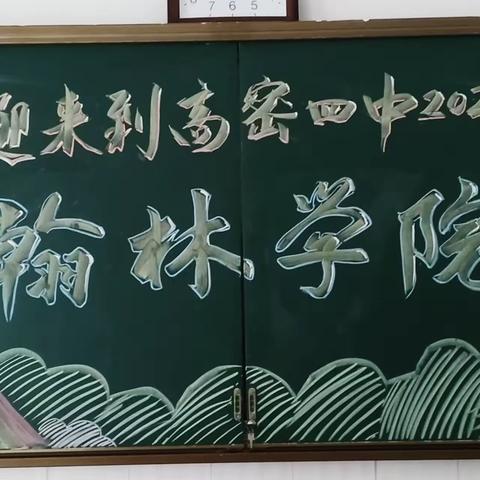 7 6 5
迎来到高密四中202
翰林学院